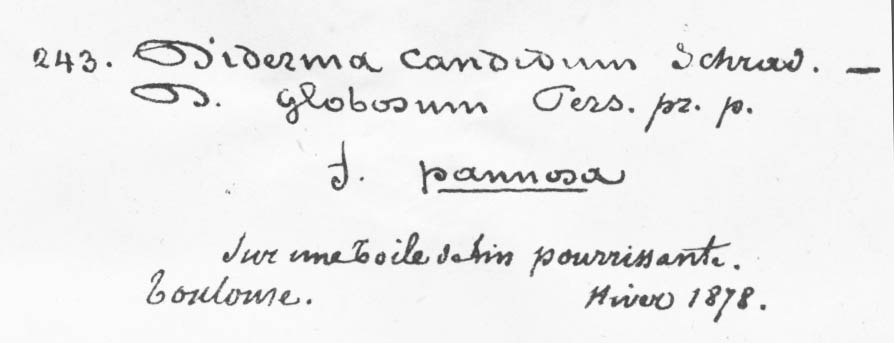 243. Diderma candidum Schrad. —
D. globosum Pers. pr. p.
f. pannosa
Sur une toile de lin pourrissante.
Toulouse. Hiver 1878.